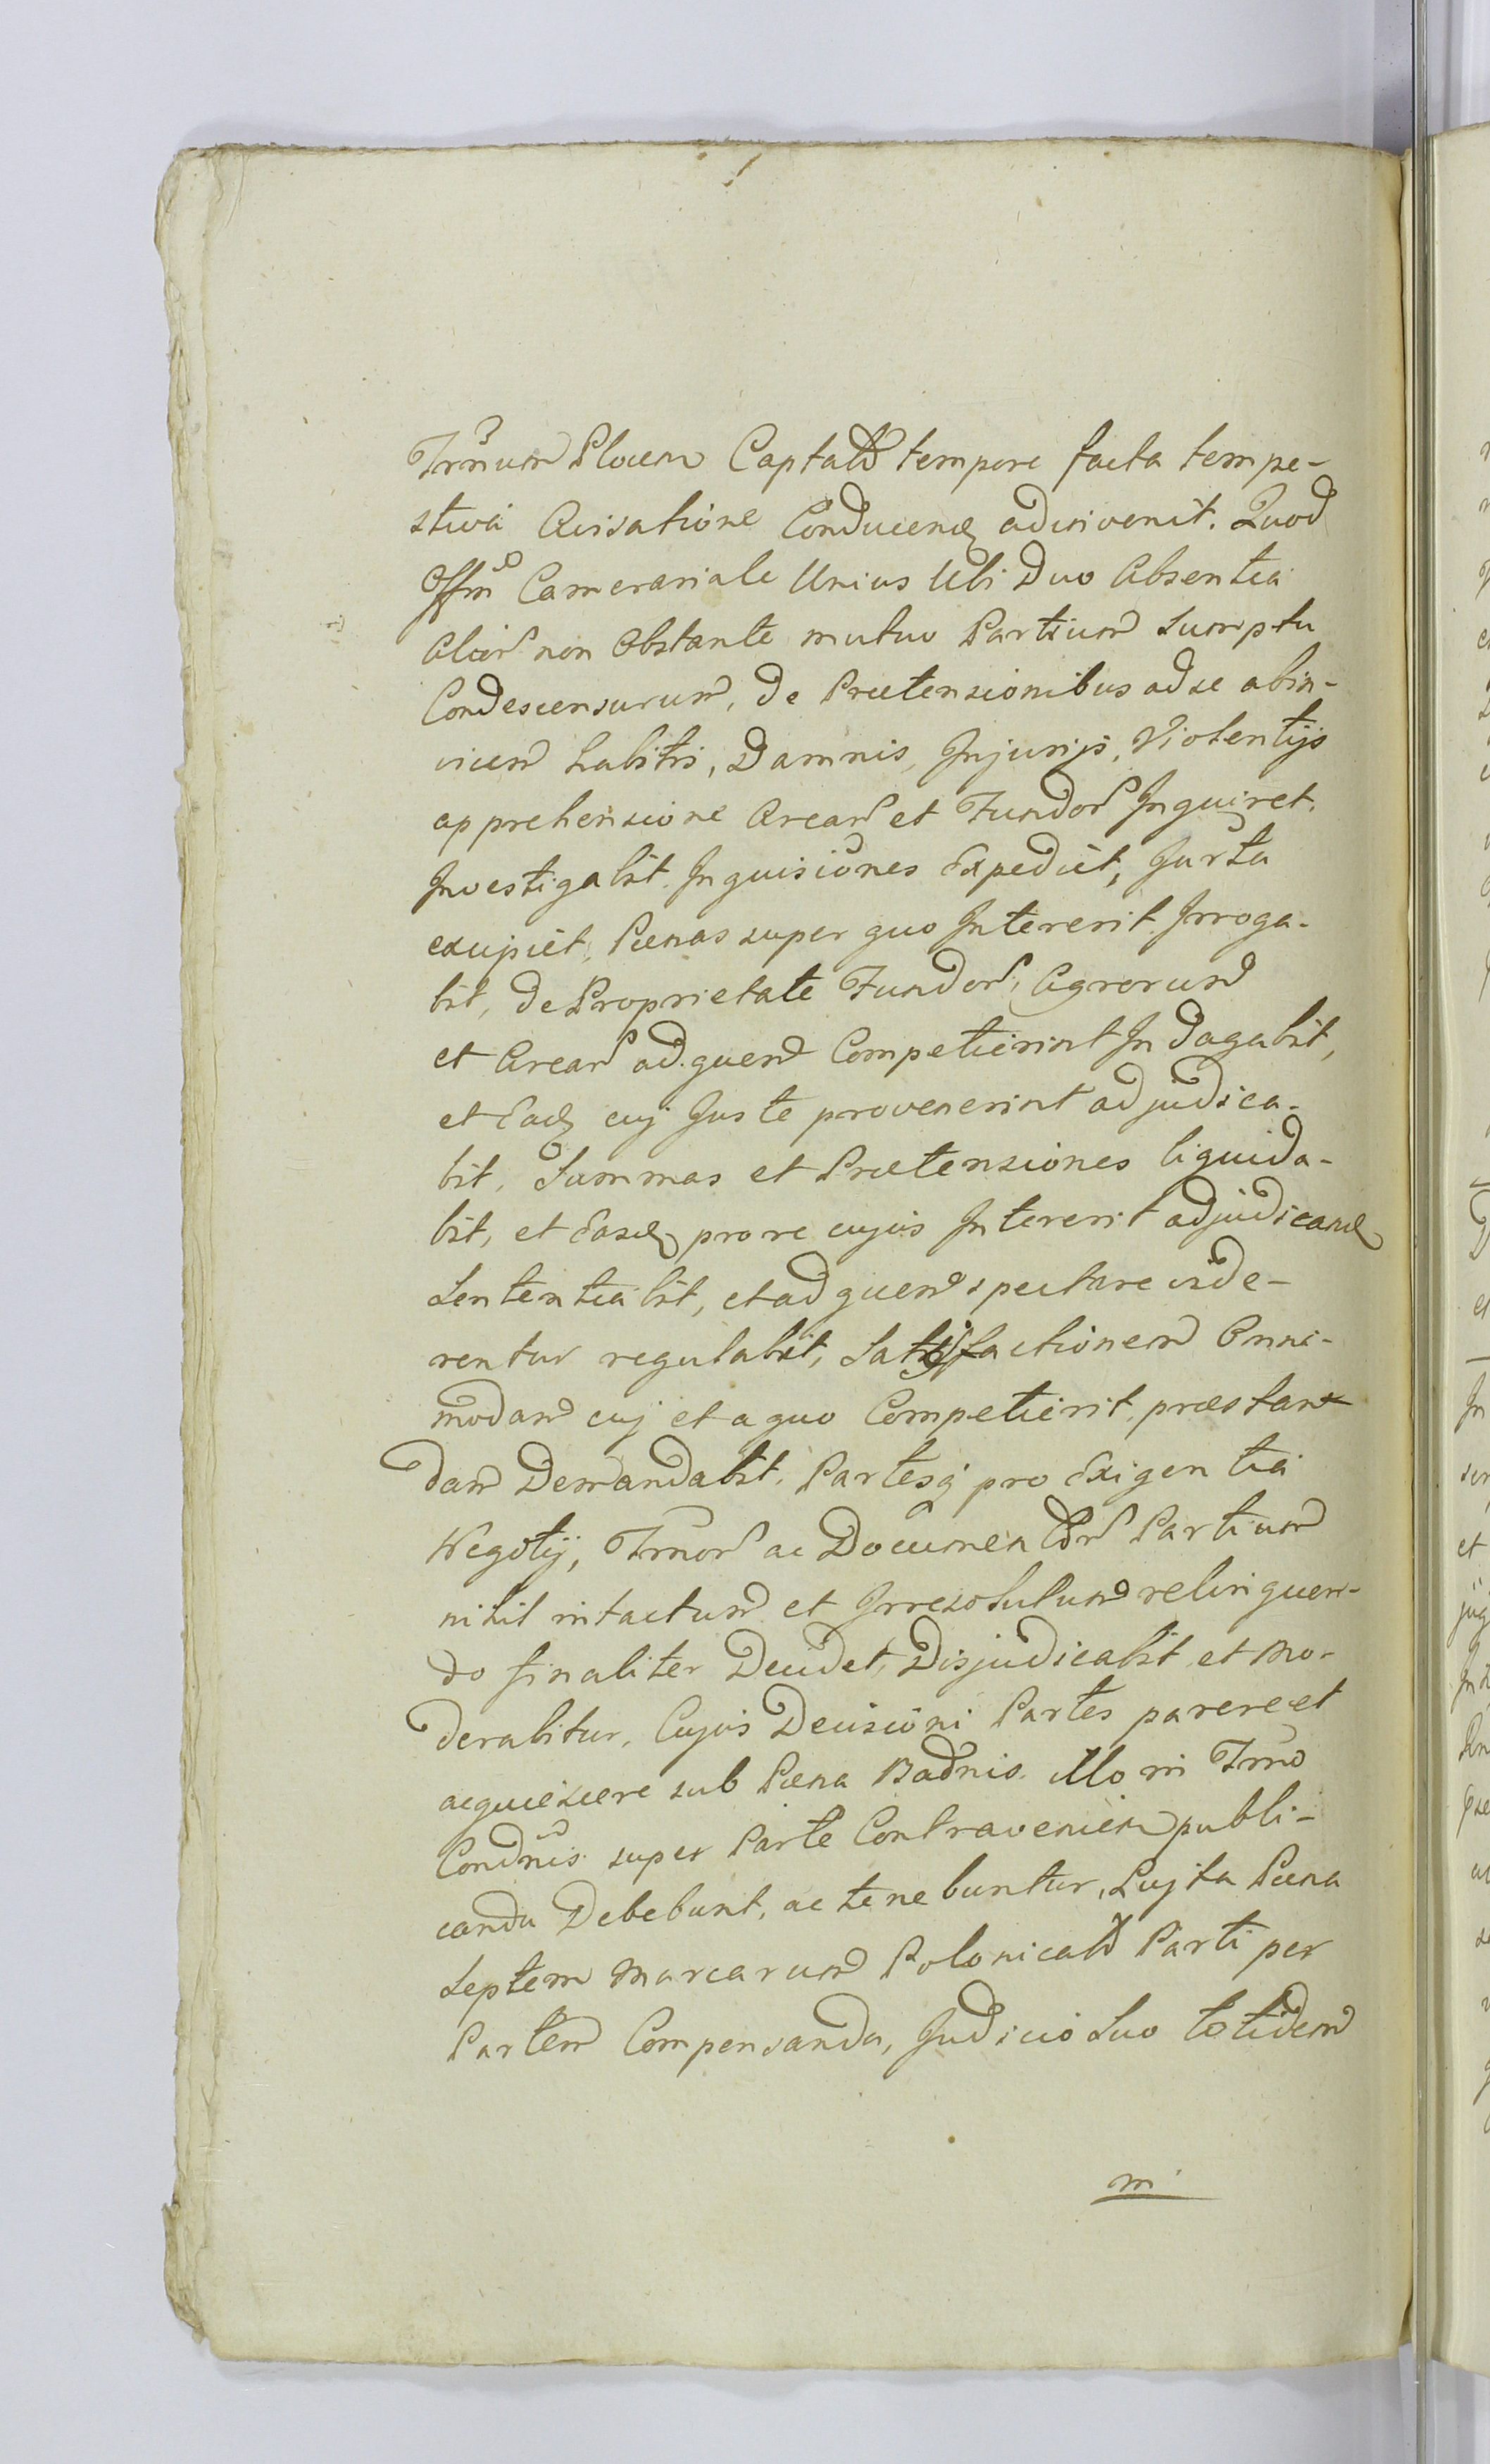 Trnum Plocen Captald tempore facta tempe-
stiva Avisatione Conducend adinvenit. Quod
Offm Camerariale Unius Ubi Duo Absentia
Alior non Obstante mutuo Partium Sumptu
Condescensurum, de Praetensionibus ad se abin-
vicem habitis, Damnis, Injurijs, Violentijs
apprehensione Arear et Fundor Inquiret.
Investigabit. Inquisiones Expediet, Jurta
excipiet, Paenas super quo Intererit Irroga-
bit, de Proprietate Fundor, Agrorum
et Arear ad quem Competierint Indagabit,
et Ead cuj Juste provenerint adjudica-
bit, Summas et Praetensiones liquida-
bit, et Easd pro re cujus Intererit adjudicand
Sententiabit, et ad quem spectare vide-
rentur regulabit, Satisfactionem Omni-
modam cuj et a quo Competierit, praestan-
dam Demandabit. Partesq pro Exigentia
Negotij, Trmor ac Documentor Partium
nihil intactum et Irresolutum relinquen-
do finaliter Decidet, Disjudicabit et Mo-
derabitur, Cujus Decisioni Partes parere et
acquiescere sub Paena Badnis illo in Trno
Condnis super Parte Contravenien publi-
canda Debebunt, ac tenebuntur, Lujta Paena
Septem Marcarum Polonicald Parti per
Partem Compensanda, Judicio Suo totidem
m